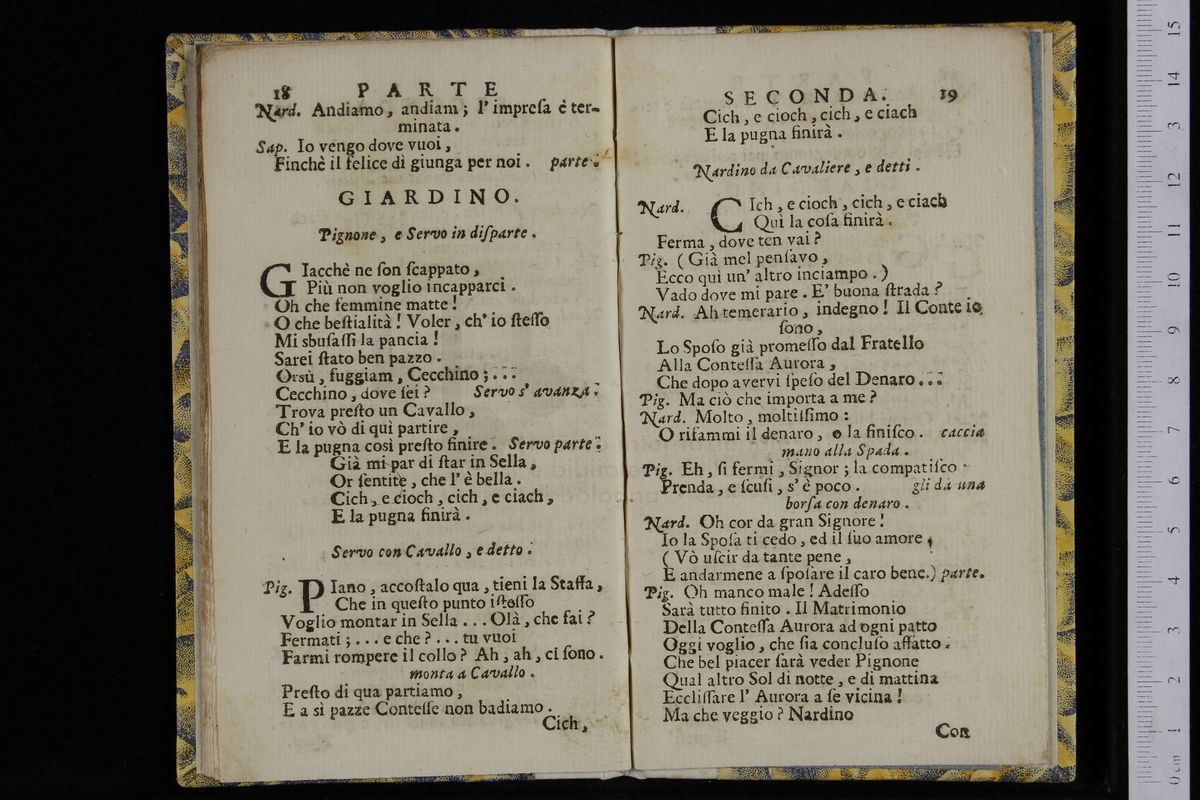 18 PARTE
Nard. Andiamo, andiam; l' impreſa è ter-
minata.
Sap. Io vengo dove vuoi,
Finchè il felice dì giunga per noi. parte.
GIARDINO.
Pignone, e Servo in diſparte.
GIacchè ne ſon ſcappato,
Più non voglio incapparci.
Oh che femmine matte!
O che beſtialità! Voler, ch' io ſteſſo
Mi sbuſaſſi la pancia!
Sarei ſtato ben pazzo.
Orsù, fuggiam, Cecchino;...
Cecchino, dove ſei? Servo s' avanza.
Trova preſto un Cavallo,
Ch' io vò di quì partire,
E la pugna così preſto finire. Servo parte.
Già mi par di ſtar in Sella,
Or ſentite, che l' è bella.
Cich, e cioch, cich, e ciach,
E la pugna finirà.
Servo con Cavallo, e detto.
Pig. PIano, accoſtalo qua, tieni la Staffa,
Che in queſto punto iſteſſo
Voglio montar in Sella... Olà, che fai?
Fermati;... e che?... tu vuoi
Farmi rompere il collo? Ah, ah, ci ſono.
monta a Cavallo.
Preſto di qua partiamo,
E a sì pazze Conteſſe non badiamo.
Cich,
SECONDA. 19
Cich, e cioch, cich, e ciach
E la pugna finirà.
Nardino da Cavaliere, e detti.
Nard. CIch, e cioch, cich, e ciach
Quì la coſa finirà.
Ferma, dove ten vai?
Pig. (Già mel penſavo,
Ecco quì un' altro inciampo.)
Vado dove mi pare. E' buona ſtrada?
Nard. Ah temerario, indegno! Il Conte io
ſono,
Lo Spoſo già promeſſo dal Fratello
Alla Conteſſa Aurora,
Che dopo avervi ſpeſo del Denaro...
Pig. Ma ciò che importa a me?
Nard. Molto, moltiſſimo:
O rifammi il denaro, o la finiſco. caccia
mano alla Spada.
Pig. Eh, ſi fermi, Signor; la compatiſco
Prenda, e ſcuſi, s' è poco. gli dà una
borſa con denaro.
Nard. Oh cor da gran Signore!
Io la Spoſa ti cedo, ed il ſuo amore,
(Vò uſcir da tante pene,
E andarmene a ſpoſare il caro bene.) parte.
Pig. Oh manco male! Adeſſo
Sarà tutto finito. Il Matrimonio
Della Conteſſa Aurora ad ogni patto
Oggi voglio, che ſia concluſo affatto.
Che bel piacer ſarà veder Pignone
Qual altro Sol di notte, e di mattina
Eccliſſare l' Aurora a ſe vicina!
Ma che veggio? Nardino
Con
0 cm 1 2 3 4 5 6 7 8 9 10 11 12 3 14 15